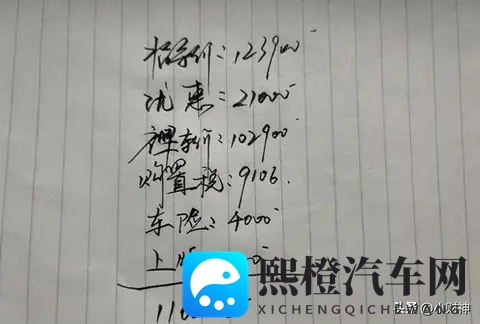 指导价:123900
优惠:21000
裸车价:102900
购置税:9106.
车险:4000
上
11
熙橙汽车网
XICHENGQICHEWANG
头条 @小财神